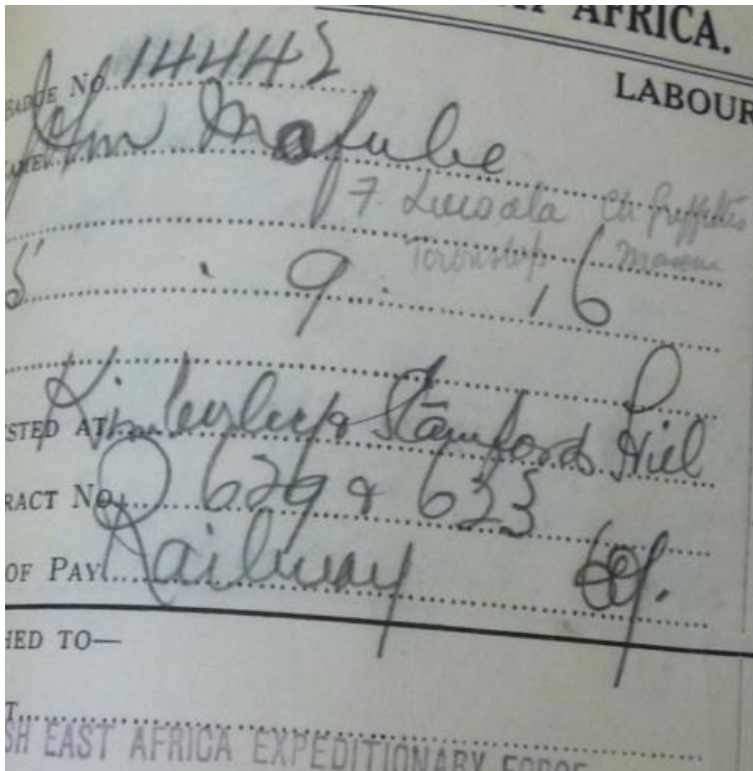 AFRICA.
LABOUR
BADGE No. 14442
NAME John Mafube
7. Ch. Griffiths
Township
5 . 9 . 16
STED AT Kimberley & Stamford Hill
RACT No. 629 & 633
OF PAY Railway 60/.
HED TO—
SH EAST AFRICA EXPEDITIONARY FORCE